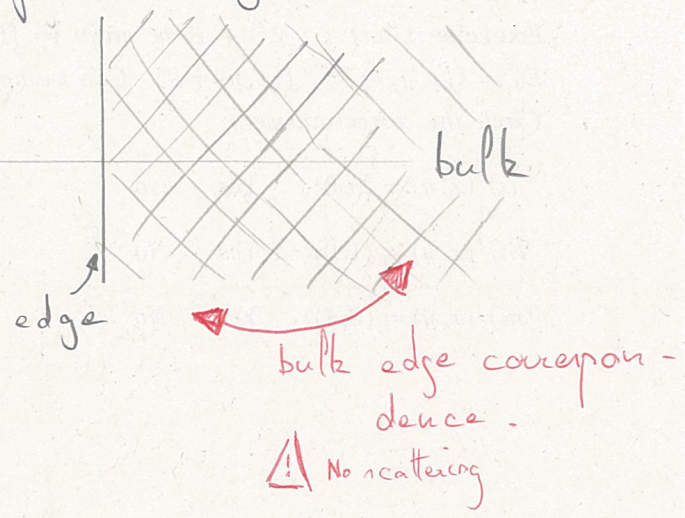 bulk
edge
bulk edge correspon-
dence.
! No scattering